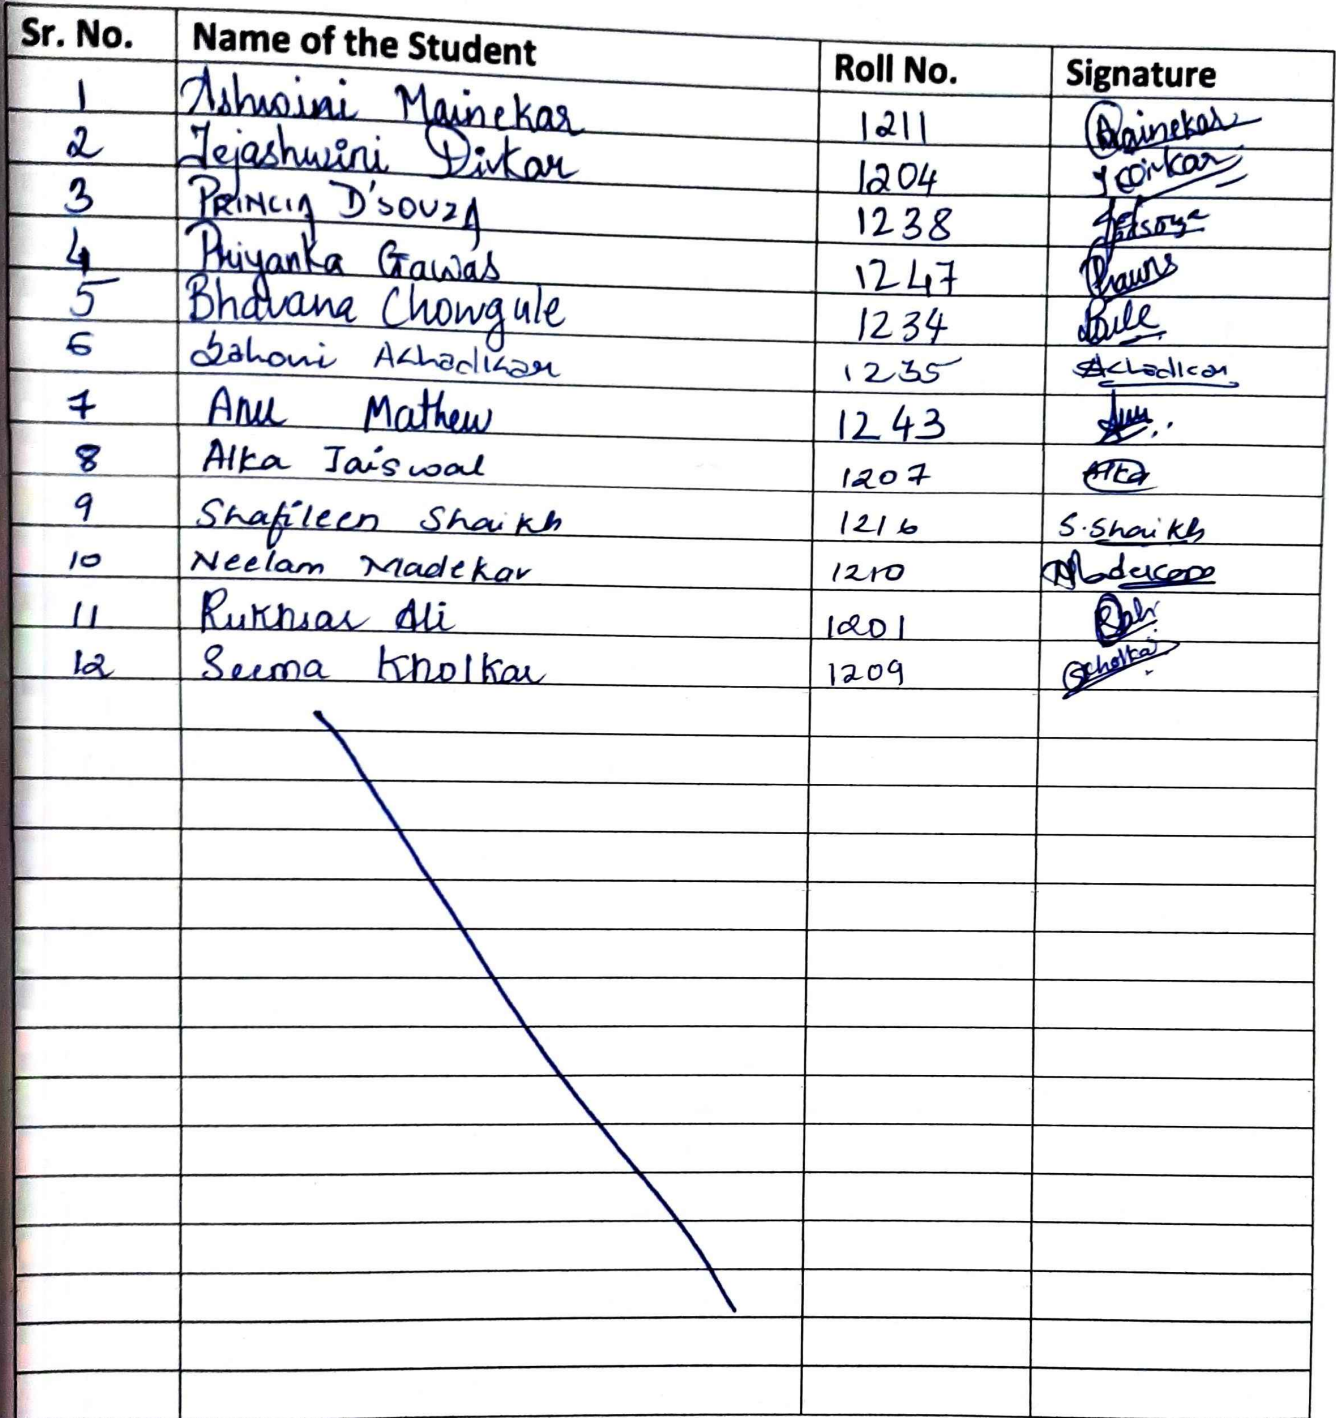 Sr. No. Name of the Student Roll No. Signature
1 Ashwini Mainekar 1211 Mainekar
2 Tejashwini Divkar 1204
3 PRINCIA D'SOUZA 1238
4 Priyanka Gawas 1247
5 Bhavana Chowgule 1234
6 Achadikar 1235 Achadikar
7 Anu Mathew 1243 Anu
8 Alka Jaiswal 1207 Alka
9 Shafileen Shaikh 1216 S.Shaikh
10 Neelam Madekar 1210
11 Rukhsar Ali 1201
12 Seema Kholkar 1209